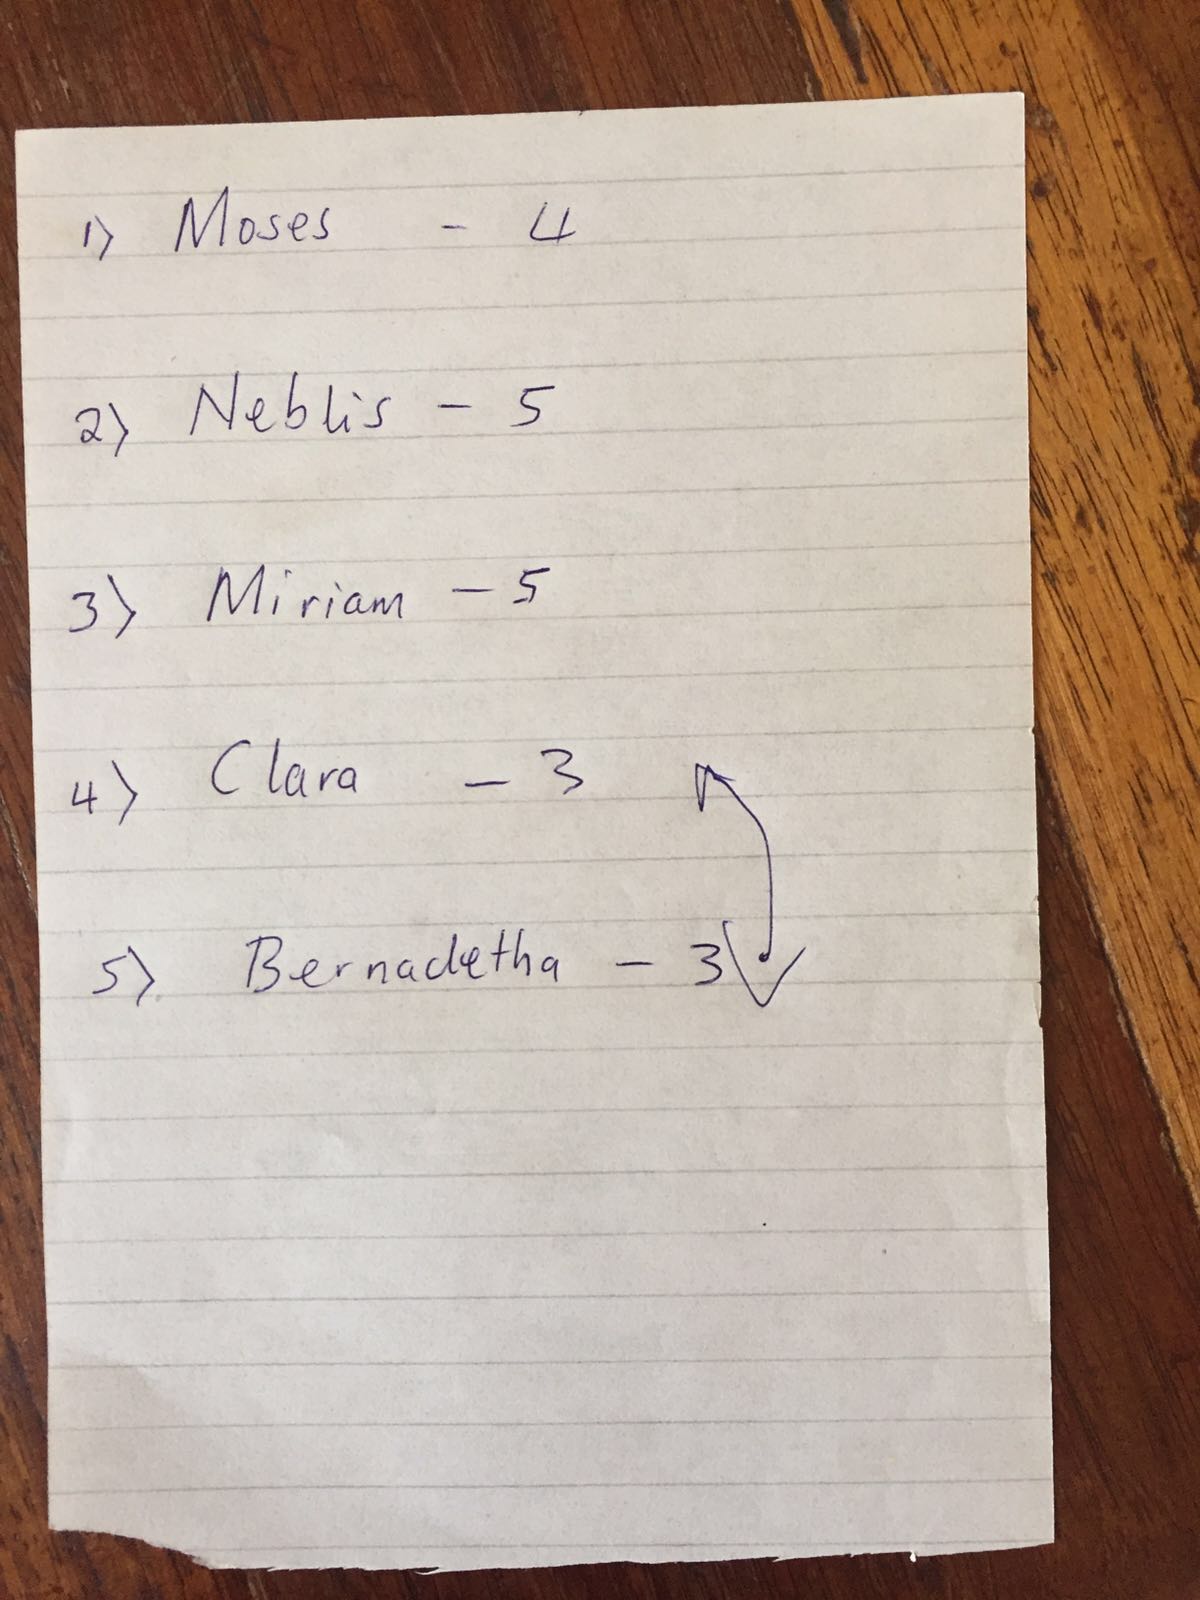 1) Moses - 4
2) Neblis - 5
3) Miriam - 5
4) Clara - 3
5) Bernadetha - 3